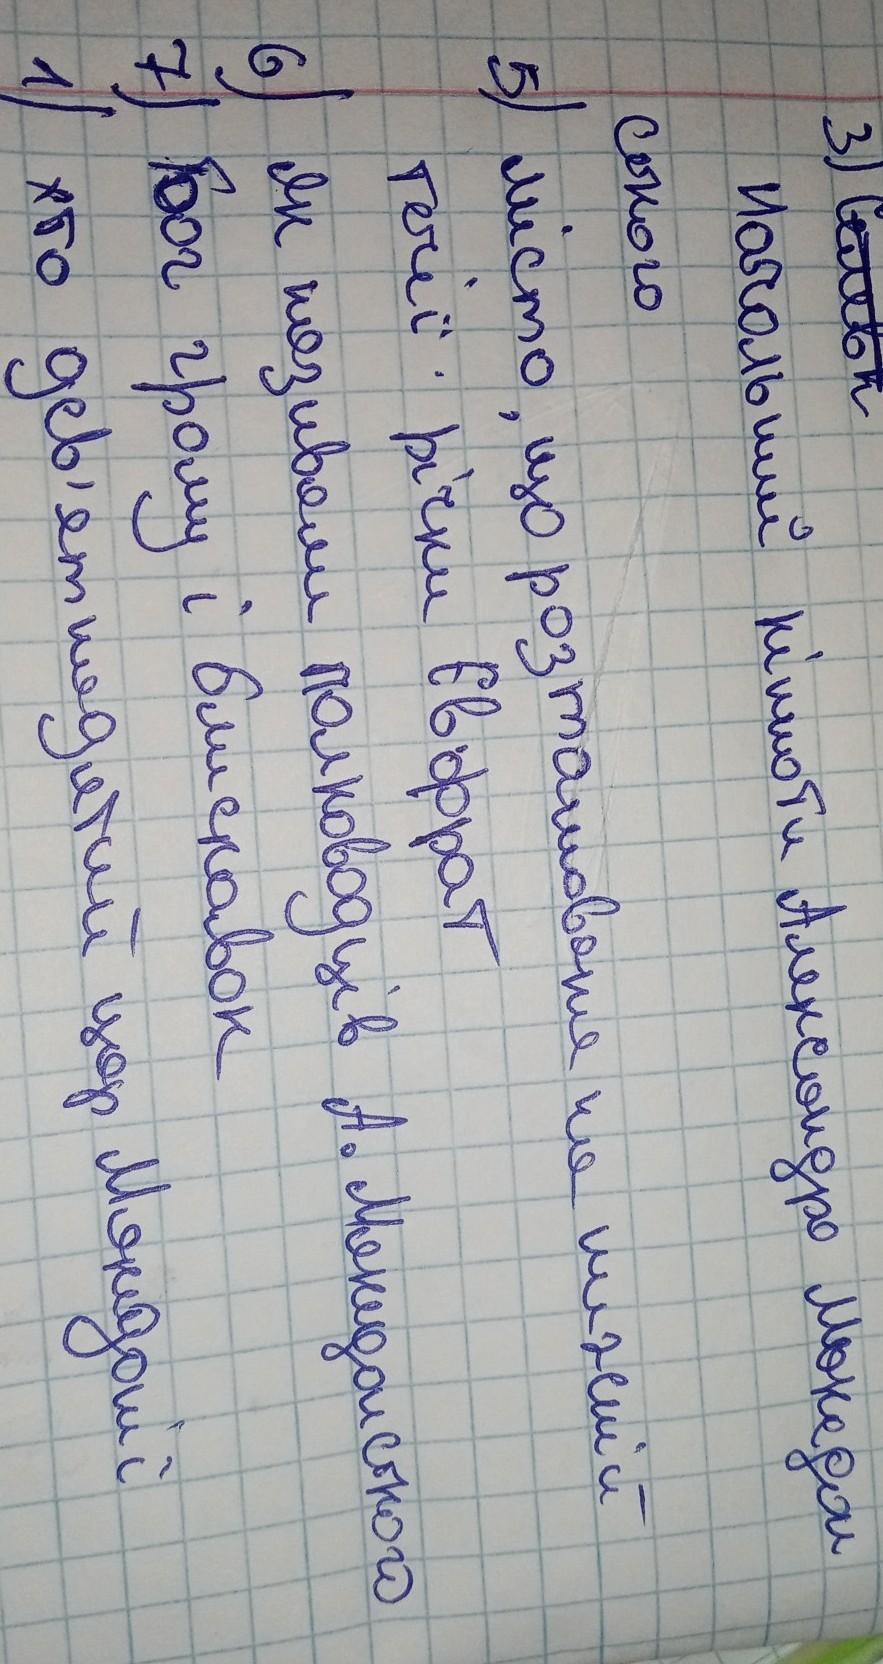 3)
Начальний кінноти Александра Македон
ського
5) місто, що розташоване на нижній
течії річки Євфрат
6) Як називали полководців А. Македонського
7) Бог грому і блискавок
1) хто дев'ятнадятий цар Македонії